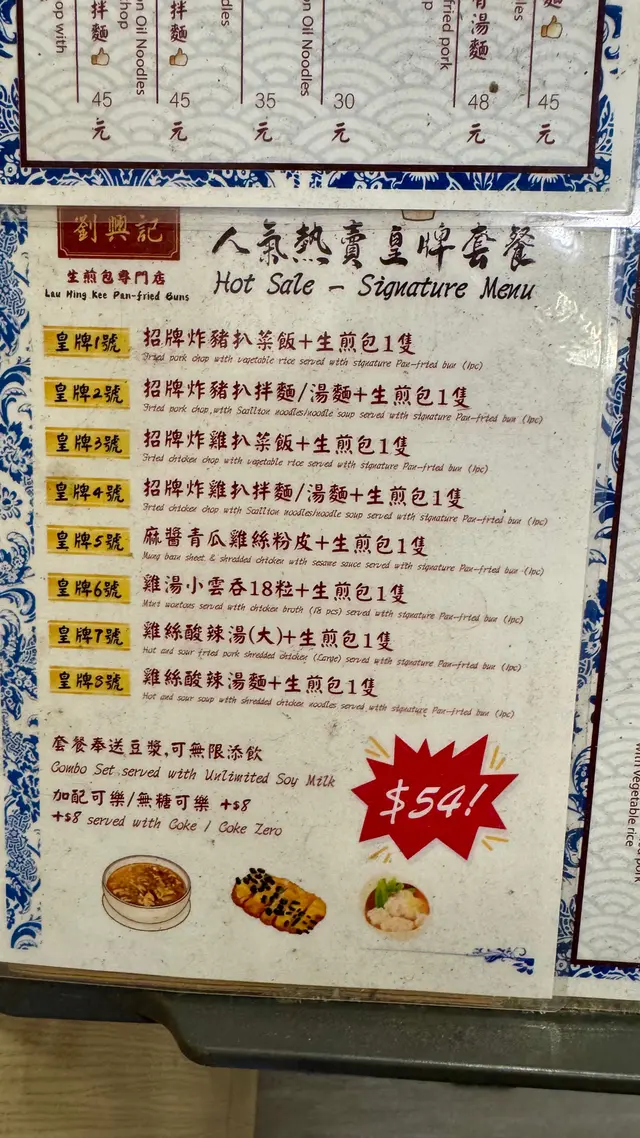 拌麵
拌麵
湯麵
麵
op with
hop
on Oil Noodles
dles
on Oil Noodles
fried pork
45
45
35
30
48
45
元
元
元
元
元
元
劉興記
生煎包專門店
Lau Hing Kee Pan-fried Buns
人氣熱賣皇牌套餐
Hot Sale - Signature Menu
皇牌1號 招牌炸豬扒菜飯+生煎包1隻
Fried pork chop with vegetable rice served with signature Pan-fried bun (1pc)
皇牌2號 招牌炸豬扒拌麵/湯麵+生煎包1隻
Fried pork chop with Scallion noodles/noodle soup served with signature Pan-fried bun (1pc)
皇牌3號 招牌炸雞扒菜飯+生煎包1隻
Fried chicken chop with vegetable rice served with signature Pan-fried bun (1pc)
皇牌4號 招牌炸雞扒拌麵/湯麵+生煎包1隻
Fried chicken chop with Scallion noodles/noodle soup served with signature Pan-fried bun (1pc)
皇牌5號 麻醬青瓜雞絲粉皮+生煎包1隻
Mung bean sheet & shredded chicken with sesame sauce served with signature Pan-fried bun (1pc)
皇牌6號 雞湯小雲吞18粒+生煎包1隻
Mini wontons served with chicken broth (18 pcs) served with signature Pan-fried bun (1pc)
皇牌7號 雞絲酸辣湯(大)+生煎包1隻
Hot and sour fried pork shredded chicken (Large) served with signature Pan-fried bun (1pc)
皇牌8號 雞絲酸辣湯麵+生煎包1隻
Hot and sour soup with shredded chicken noodles served with signature Pan-fried bun (1pc)
套餐奉送豆漿,可無限添飲
Combo Set served with Unlimited Soy Milk
加配可樂/無糖可樂 +$8
+$8 served with Coke / Coke Zero
$54!
with vegetable rice